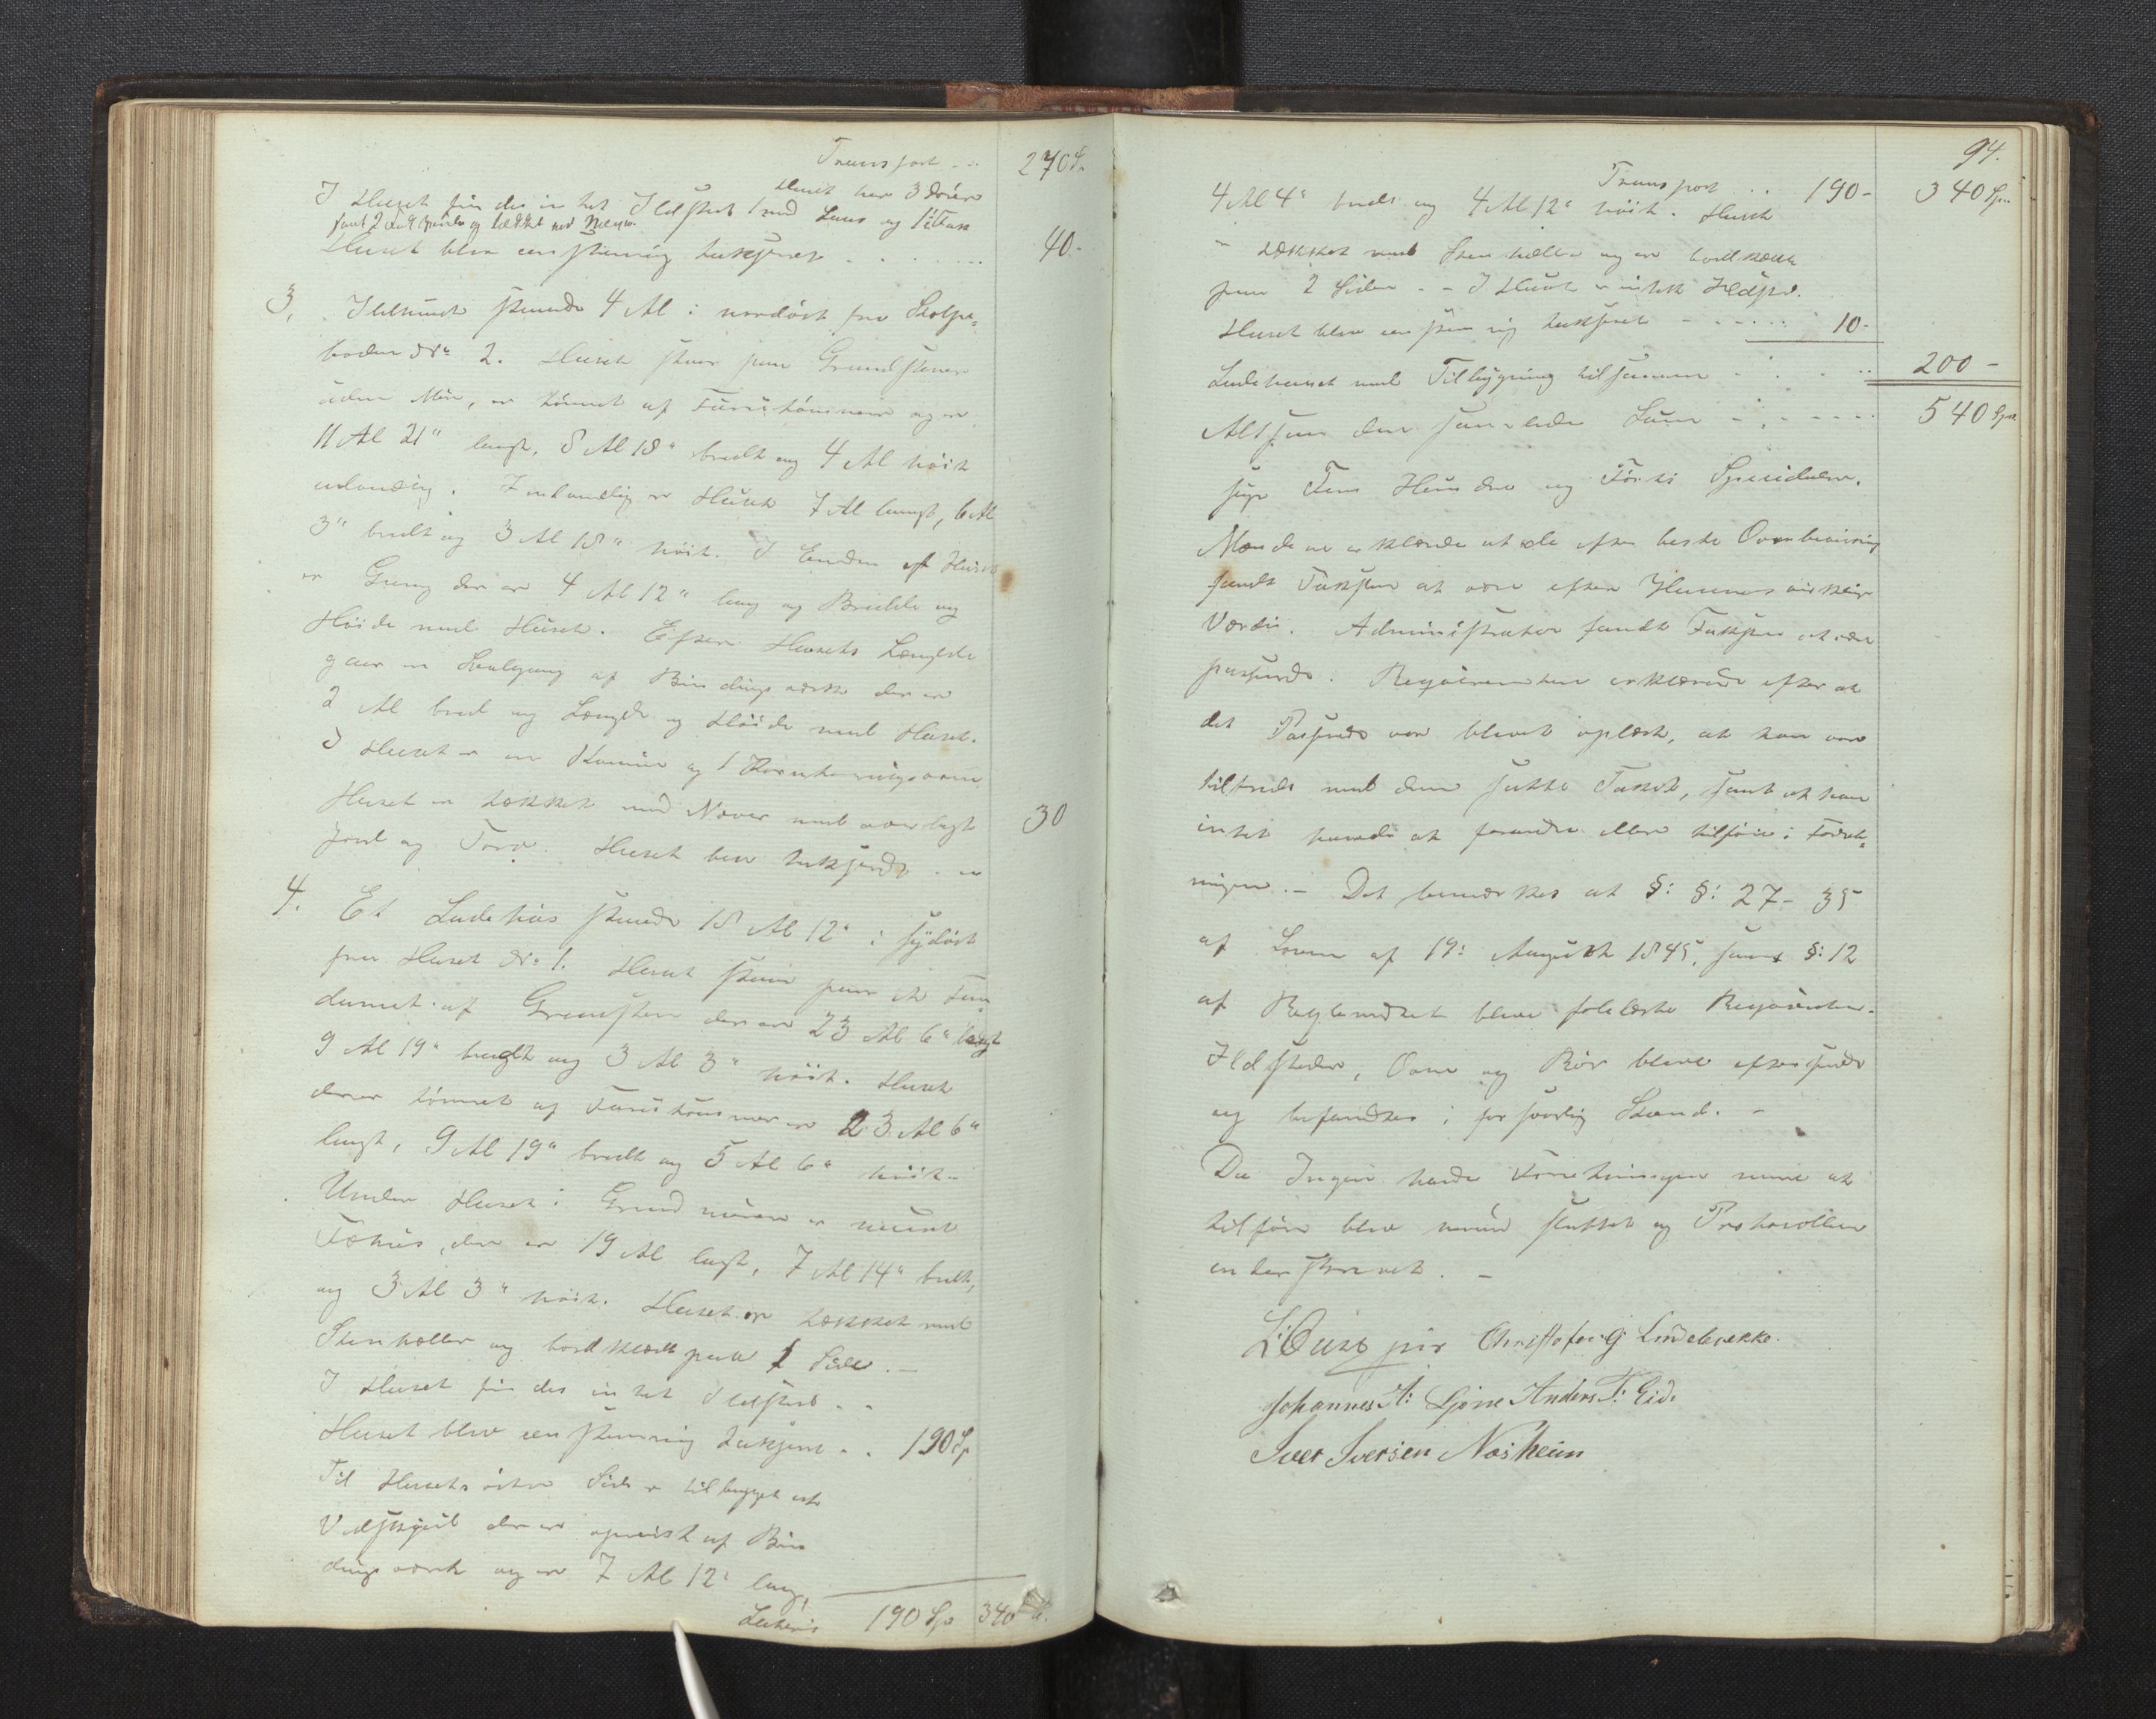 Transport ... 270 S.
Huset har 3 Döre
I Huset findes intet Ildsted 1 med Laas og 1 i Træk
samt 2 Fag Vinduer og tækket med Næver.
Huset blev eenstemmig taxeret . . . . . . 40.-
3. Ildhuset staaende 4 Al i nordöst fra Stolpe-
boden No 2. Huset staar paa Grundstene
uden Muur, er tömret af Furutömmer og er
11 Al 21" langt, 8 Al 18" bredt og 4 Al höit
udvendig. Indvendig er Huset 7 Al langt, 6 Al
3" bredt og 3 Al 18" höit. I Enden af Huset
er Gang der er 4 Al 12" lang og Bredde og
Höide med Huset. Efter Husets Længde
gaar en Svalgang af Bindingsværk der er
2 Al bred og Længde og Höide med Huset.
I Huset er en Kamin og 1 Korntörringsovn
Huset er tækket med Næver med overlagt
Jord og Torv. Huset blev taxeret . . . 30
4. Et Ladehus staaende 18 Al 12" i sydöst
fra Huset No 1. Huset staar paa et Fun-
dament af Graasten der er 23 Al 6" langt
9 Al 19" bredt og 3 Al 3" höit. Huset
der er tömret af Furutömmer er 23 Al 6"
langt, 9 Al 19" bredt og 5 Al 6" höit.-
Under Huset i Grundmuren er muret
Fæhus, der er 19 Al langt, 7 Al 14" bredt,
og 3 Al 3" höit. Huset er tækket med
Stenheller og bordklædt paa 1 Side.-
I Huset findes intet Ildsted . .
Huset blev eenstemmig taxeret . . 190 Sp
Til Husets östre Side er tilbygget et
Vedskjul der er opreist af Bin
dingsværk og er 7 Al 12" lang,
Lateris 190 Sp 340
94.
Transport . . . 190- 340 Spd.
4 Al 4" bredt og 4 Al 12" höit. Huset
er tækket med Stenheller og er bordklædt
paa 2 Sider - - I Huset er intet Ildsted.
Huset blev eenstemmig taxeret - - . . . . 10-
Ladehuset med Tilbygning tilsammen - . . . . 200 -
Altsaa den samlede Sum - . - - - - - 540 Spd.
siger Fem Hundre og Förti Speciedaler.
Mændene erklærede at de efter beste Overbeviisning
fandt Taxten at være efter Husenes virkelige
Værdi. Administrator fandt Taxten at være
passende. Requirenten erklærede efter at
det Passerede var blevet oplæst, at han var
tilfreds med den satte Taxt, samt at han
intet havde at forandre eller tilföie i Forret-
ningen.- Det bemærkes at §: §: 27 - 35
af Loven af 19: August 1845, samt §: 12
af Reglementet bleve forelæste Requirenten.
Ildsteder, Ovne og Rör bleve efterseede
og befandtes i forsvarlig Stand. -
Da Ingen havde Forretningen mere at
tilföie blev samme sluttet og Protokollen
underskrevet. -
Christofer G Lindebrekke.
Johannes A: Anders T: Eide
Iver Iversen Næsheim